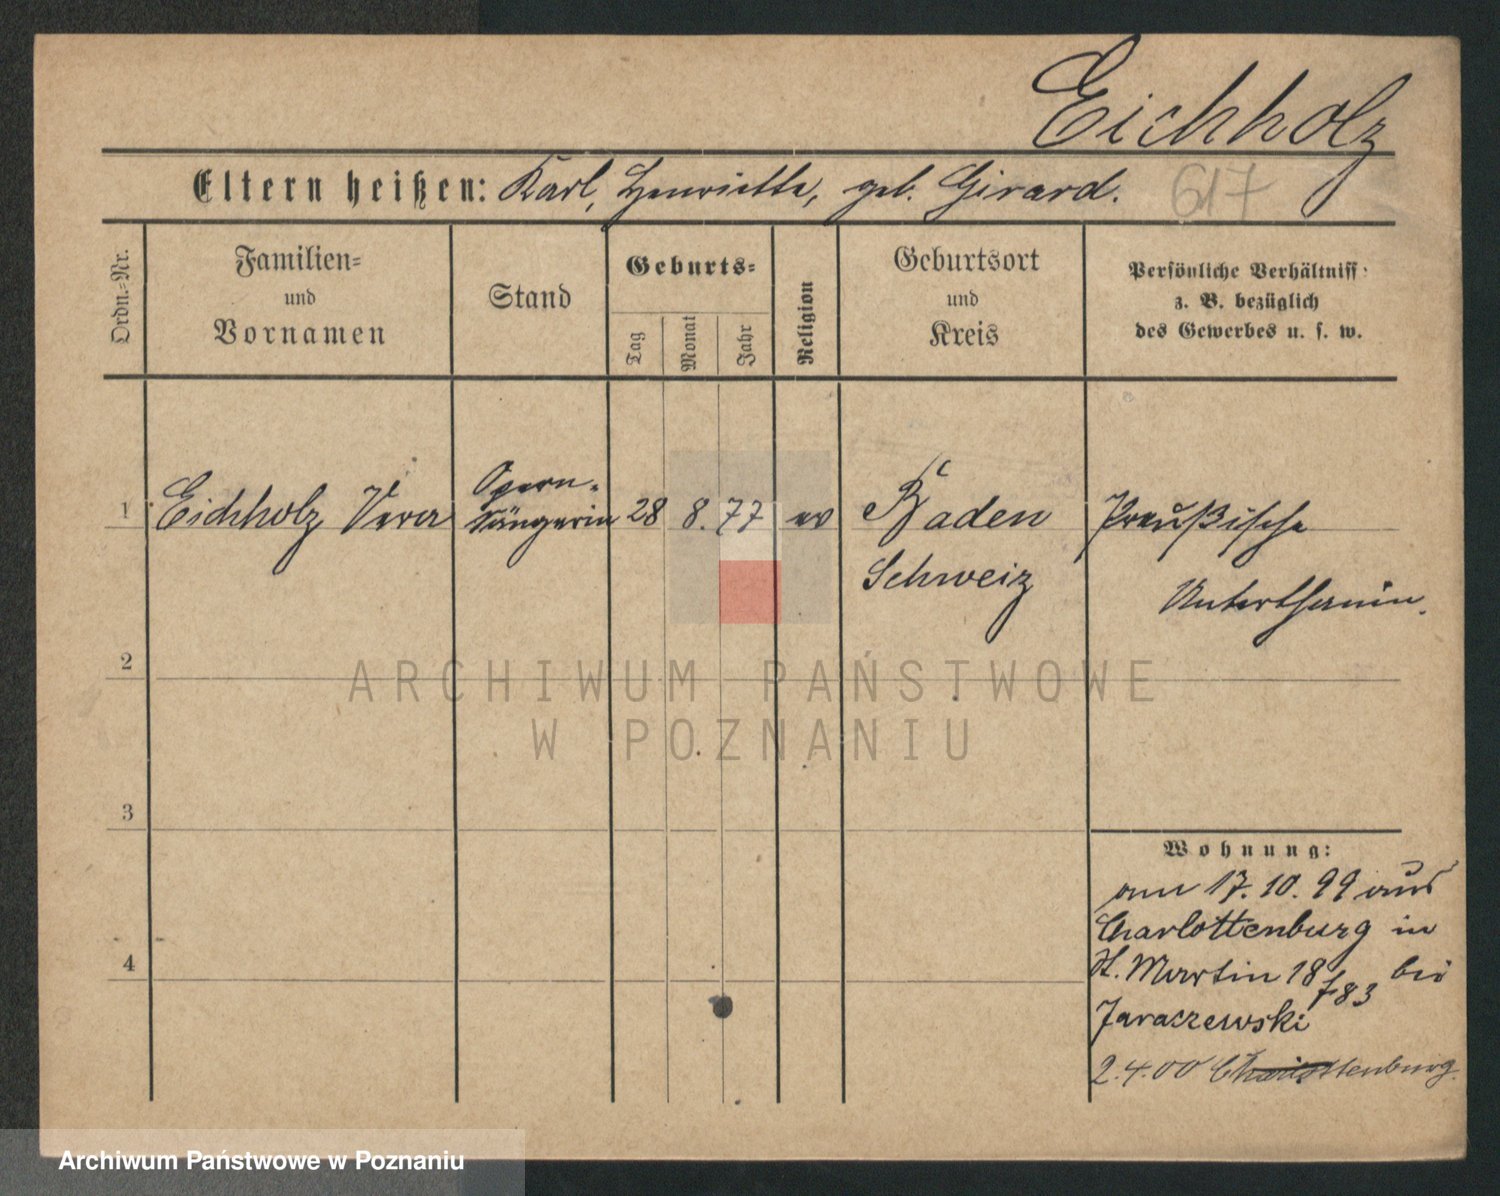 Eichholz
Eltern heißen: Karl, Henriette, geb. Girard.
617
Ordn.-Nr.
Familien-
und
Vornamen
Stand
Geburts-
Tag
Monat
Jahr
Religion
Geburtsort
und
Kreis
Persönliche Verhältniss
z. B. bezüglich
des Gewerbes u. s. w.
1
Eichholz Vera
Opern-
sängerin
28
8.
77
ev
Baden
Schweiz
Preußische
Unterthanin.
2
ARCHIWUM PAŃSTWOWE
W POZNANIU
3
4
Wohnung:
am 17. 10. 99 aus
Charlottenburg in
St. Martin 18 bei
f83
Jaraczewski
2.4.00 Charlottenburg.
Archiwum Państwowe w Poznaniu